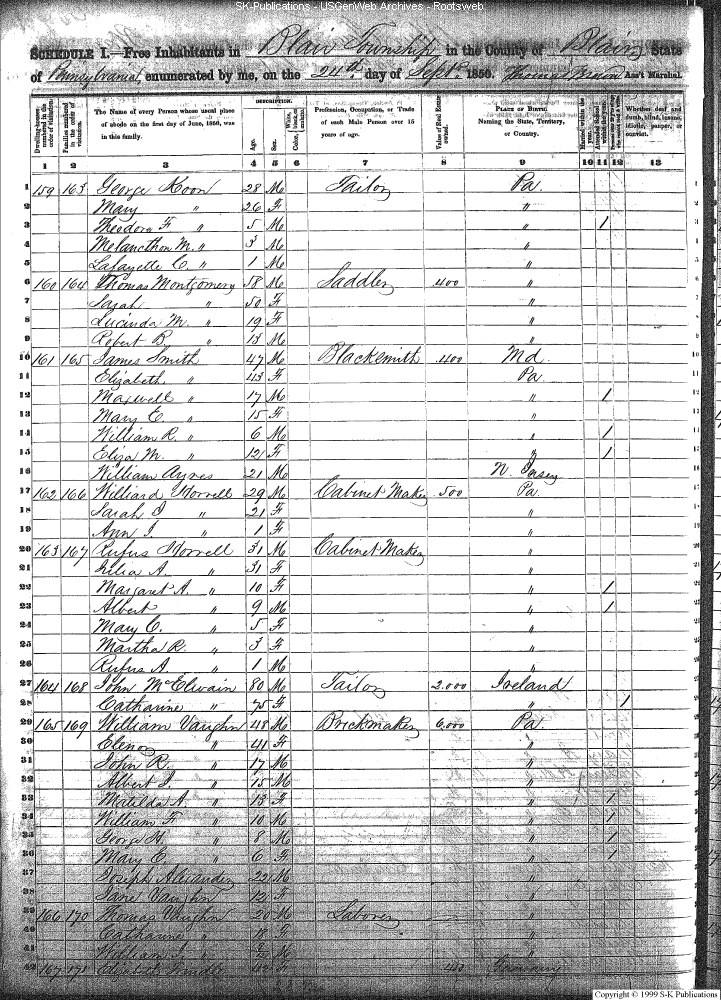 SK-Publications - USGenWeb Archives - Rootsweb
SCHEDULE I.—Free Inhabitants in Blair Township in the County of Blair State
of Pennsylvania enumerated by me, on the 24th day of Sept. 1850. Ass't Marshal.
DESCRIPTION.
Dwelling-houses numbered in the order of visitation. Families numbered in order of visitation. The Name of every Person whose usual place of abode on the first day of June, 1850, was in this family. Age. Sex. Profession, Occupation, or Trade of each Male Person over 15 years of age. Value of Real Estate owned. PLACE OF BIRTH. Naming the State, Territory, or Country. Married within the year. Whether deaf and dumb, blind, insane, idiotic, pauper, or convict.
1 2 3 4 5 6 7 8 9 10 11 12 13
1 159 163 George Koon 28 M Tailor Pa.
2 Mary " 26 F "
3 Theodore F " 5 M " 1
4 Melancthon M. " 3 M "
5 Lafayette C. " 1 M "
6 160 164 Thomas Montgomery 58 M Saddler 400 "
7 Sarah " 50 F "
8 Lucinda M. " 19 F "
9 Robert B. " 13 M "
10 161 165 James Smith 47 M Blacksmith 400 Md.
11 Elizabeth " 43 F Pa.
12 Maxwell " 17 M " 1
13 Mary E. " 15 F "
14 William R. " 6 M " 1
15 Eliza M. " 12 F " 1
16 William Ayres 21 M N. Jersey
17 162 166 Williard 29 M Cabinet Maker 500 Pa.
18 Sarah J " 21 F "
19 Ann J. " 1 F "
20 163 167 Rufus 31 M Cabinet Maker "
21 A. " 31 F "
22 Margaret A. " 10 F " 1
23 Albert " 9 M " 1
24 Mary C. " 5 F "
25 Martha R. " 3 F "
26 Rufus A. " 1 M "
27 164 168 John McElwain 80 M Tailor 2.000 Ireland
28 Catharine " 75 F " 1
29 165 169 William Vaughn 48 M Brickmaker 6.000 Pa.
30 Elenor " 41 F "
31 John R. " 17 M "
32 Albert J. " 15 M "
33 Matilda A. " 13 F " 1
34 William F. " 10 M " 1
35 George H. " 8 M " 1
36 Mary E. " 6 F " 1
37 Joseph Alexander 22 M "
38 Jane Vaughn 12 F "
39 166 170 Thomas Vaughn 20 M Laborer "
40 Catharine " 18 F "
41 William J. " M "
42 167 171 F Germany
Copyright © 1999 S-K Publications